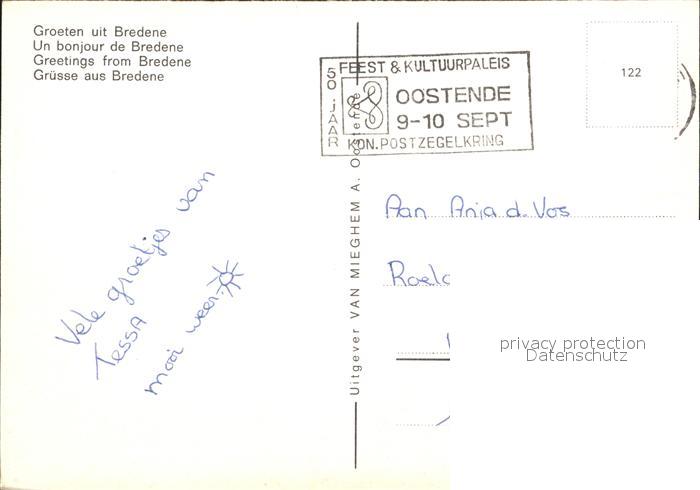 Groeten uit Bredene
Un bonjour de Bredene
Greetings from Bredene
Grüsse aus Bredene
50 JAAR
FEEST & KULTUURPALEIS
OOSTENDE
9-10 SEPT
KON. POSTZEGELKRING
122
Vele groetjes van
Tessa
mooi weer
Uitgever VAN MIEGHEM A. Oostende
Aan Anja d. Vos
privacy protection
Datenschutz